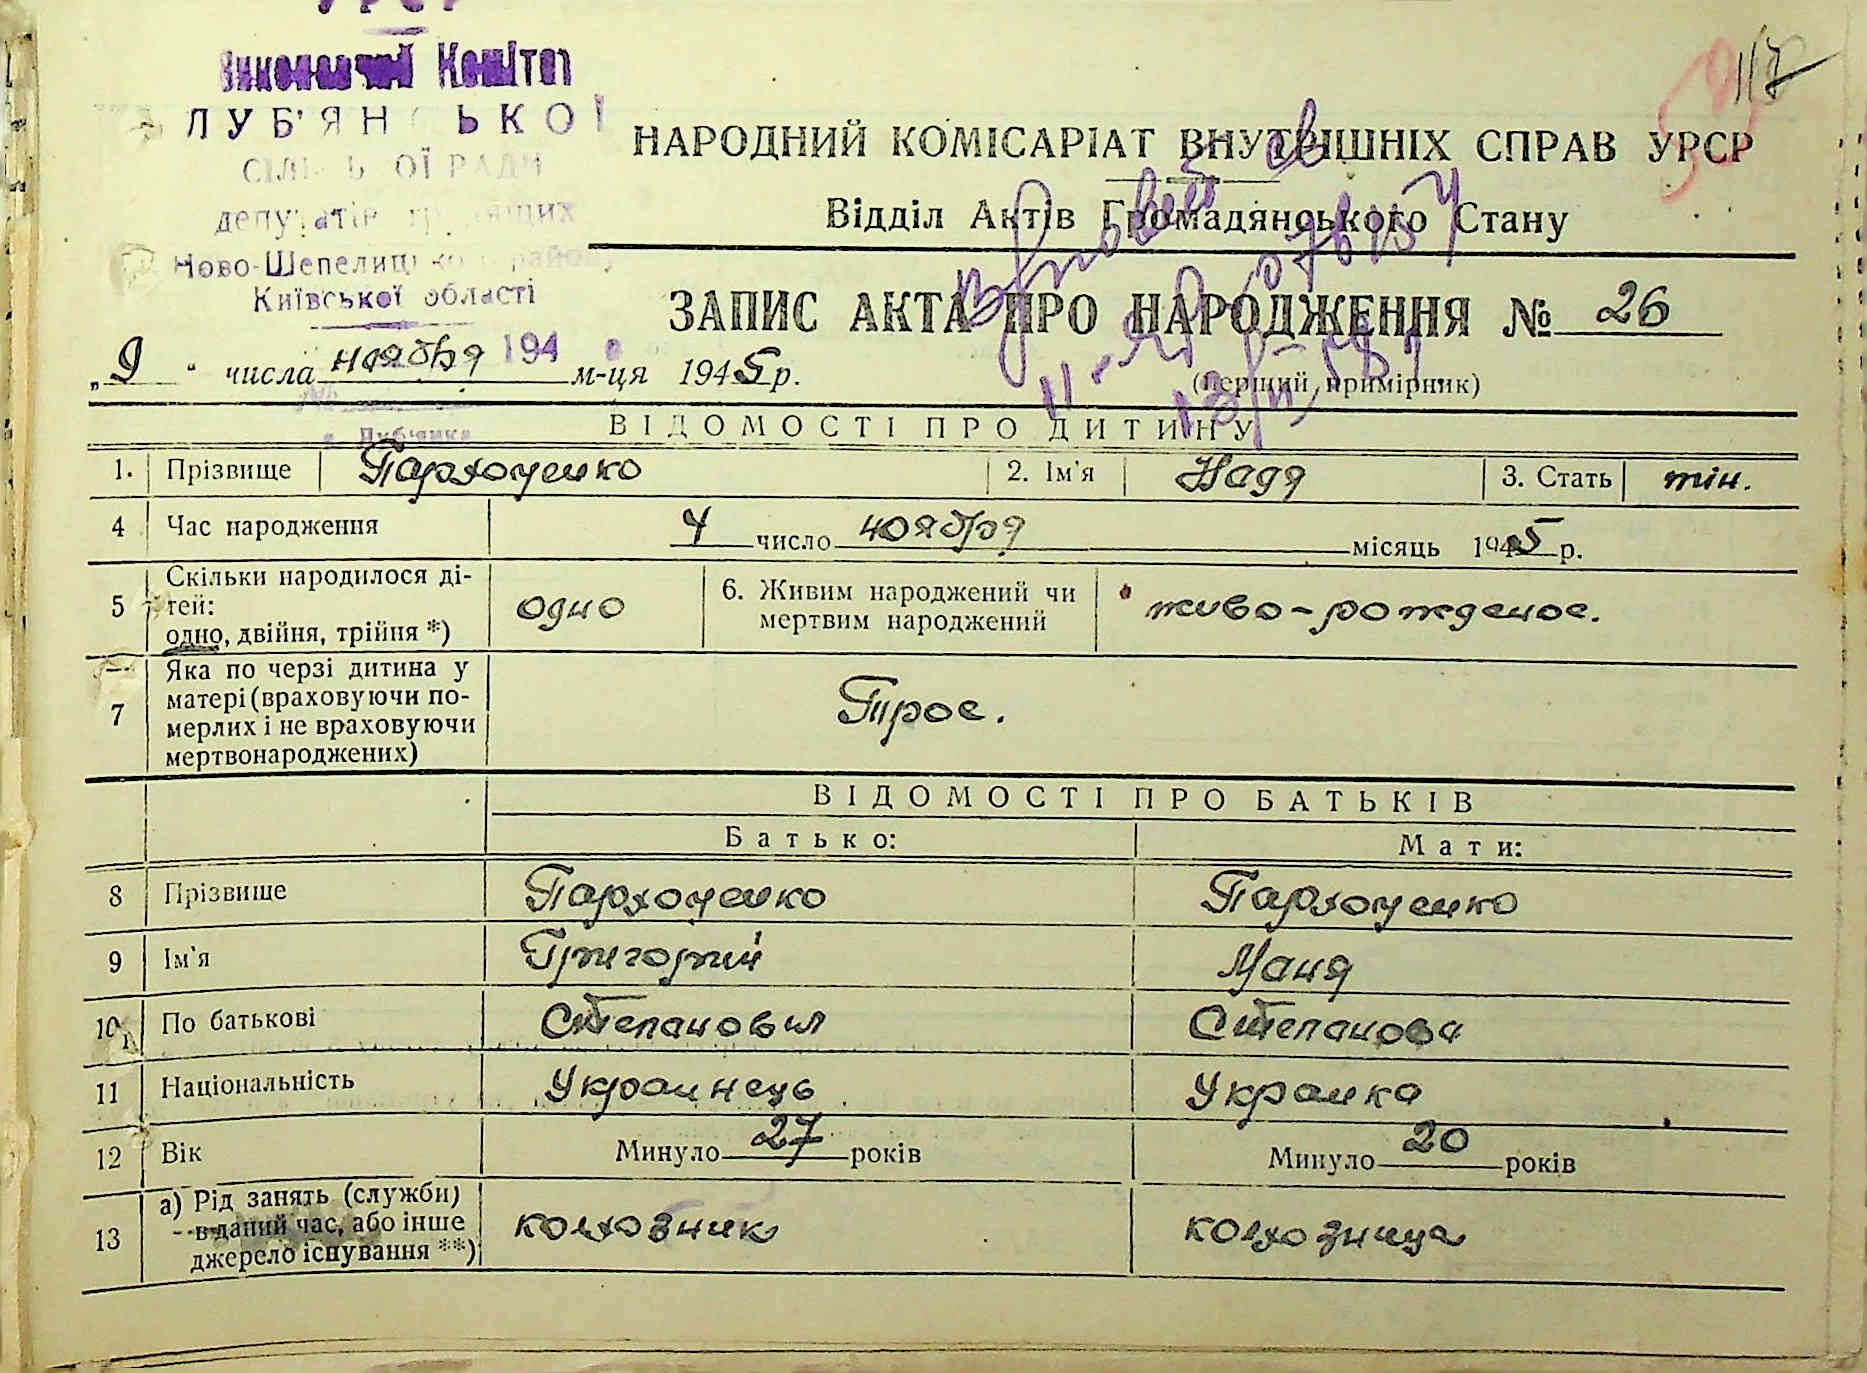 УРСР
Виконавчий Комітет
ЛУБ'ЯНСЬКОЇ
СІЛЬСЬКОЇ РАДИ
депутатів трудящих
Ново-Шепелицького району
Київської області
194 р.
№
с. Луб'янка
117
НАРОДНИЙ КОМІСАРІАТ ВНУТРІШНІХ СПРАВ УРСР
Відділ Актів Громадянського Стану
ЗАПИС АКТА ПРО НАРОДЖЕННЯ № 26
„9“ числа ноября м-ця 1945 р.
(перший примірник)
ВІДОМОСТІ ПРО ДИТИНУ
1. Прізвище Пархоменко 2. Ім'я Надя 3. Стать жін.
4 Час народження 4 число ноября місяць 1945 р.
5 Скільки народилося ді-
тей:
одно, двійня, трійня *) одно
6. Живим народжений чи
мертвим народжений живо-рожденое.
7 Яка по черзі дитина у
матері (враховуючи по-
мерлих і не враховуючи
мертвонароджених) Трое.
ВІДОМОСТІ ПРО БАТЬКІВ
Батько: Мати:
8 Прізвище Пархоменко Пархоменко
9 Ім'я Григорий Маня
10 По батькові Степанович Степанова
11 Національність Украинець Украинка
12 Вік Минуло 27 років Минуло 20 років
13 а) Рід занять (служби)
в даний час, або інше
джерело існування **) колхозник колхозница